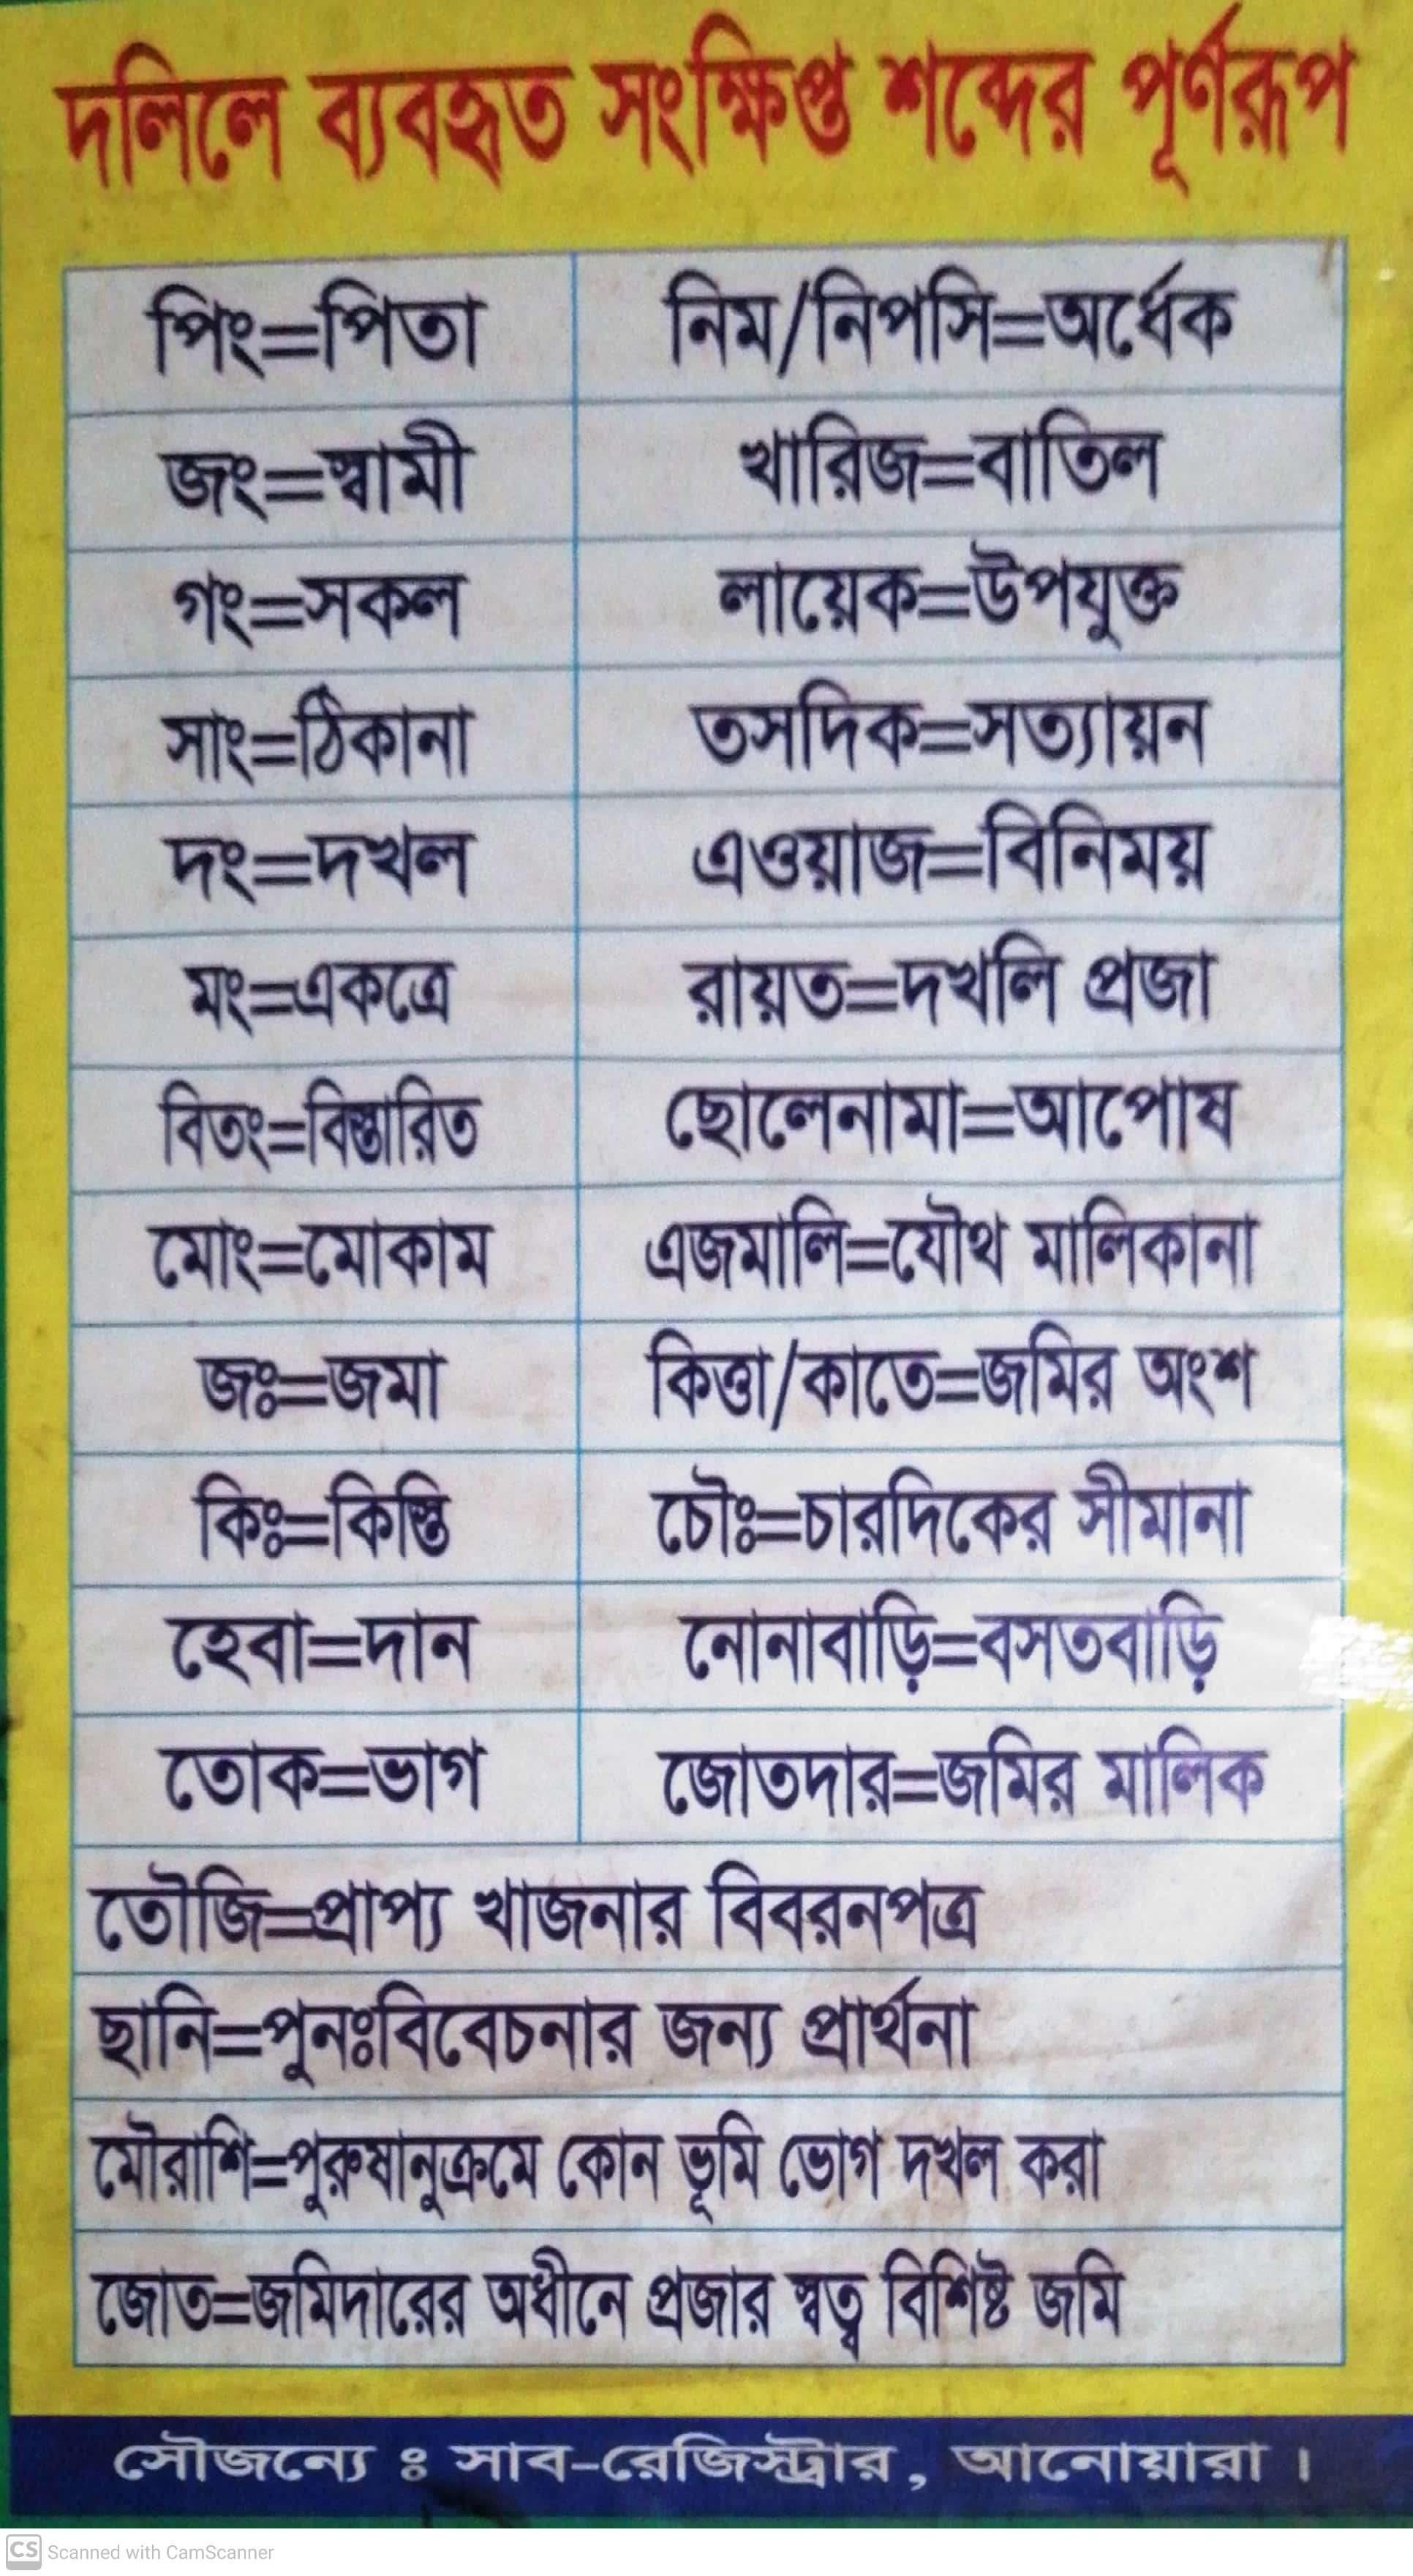 দলিলে ব্যবহৃত সংক্ষিপ্ত শব্দের পূর্ণরূপ
পিং=পিতা নিম/নিপসি=অর্ধেক
জং=স্বামী খারিজ=বাতিল
গং=সকল লায়েক=উপযুক্ত
সাং=ঠিকানা তসদিক=সত্যায়ন
দং=দখল এওয়াজ=বিনিময়
মং=একত্রে রায়ত=দখলি প্রজা
বিতং=বিস্তারিত ছোলেনামা=আপোষ
মোং=মোকাম এজমালি=যৌথ মালিকানা
জঃ=জমা কিত্তা/কাতে=জমির অংশ
কিঃ=কিস্তি চৌঃ=চারদিকের সীমানা
হেবা=দান নোনাবাড়ি=বসতবাড়ি
তোক=ভাগ জোতদার=জমির মালিক
তৌজি=প্রাপ্য খাজনার বিবরনপত্র
ছানি=পুনঃবিবেচনার জন্য প্রার্থনা
মৌরাশি=পুরুষানুক্রমে কোন ভূমি ভোগ দখল করা
জোত=জমিদারের অধীনে প্রজার স্বত্ব বিশিষ্ট জমি
সৌজন্যে ঃ সাব-রেজিস্ট্রার, আনোয়ারা।
CS Scanned with CamScanner